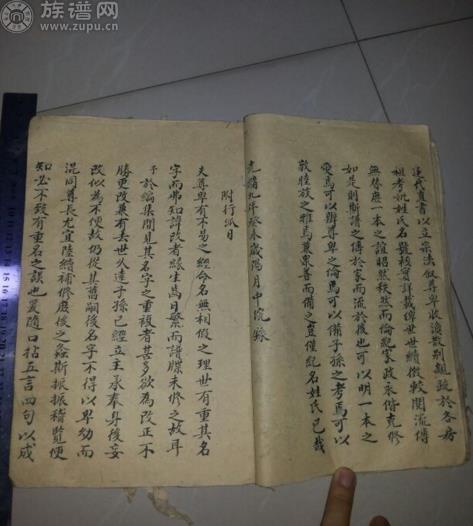 族谱网
zupu.cn
逐代直書以立宗法叙尊卑收渙散別親疎於各房
祖考妣姓氏名號核實詳載俾世世續徽較閱流傳
無替庶一本之誼昭然秩然而倫紀家政永偕克修
如是則斯譜之傳於家而流於後也可以明一本之
愛焉可以辦尊卑之倫焉可以備子孫之考焉可以
敦睦族之雅焉萬東善而備之豈僅紀名姓氏已哉
光緒九年癸未歲陽月中浣録
附行派目
夫尊卑有不易之經命名無利假之理世有重其名
字而弗知諱改者緣生齒日繁而譜牒未修之故耳
予於編集間見其名字之重複者甚多欲為改正不
勝更改兼有去世人遠子孫已經立主承奉身後妄
改似為不便故仍從其舊嗣後名字不得以卑幼而
混同尊長尤宜陸續補修庶後之螽斯振振稽覽便
知必不致有重名之誤也爰隨口拈五言四句以成